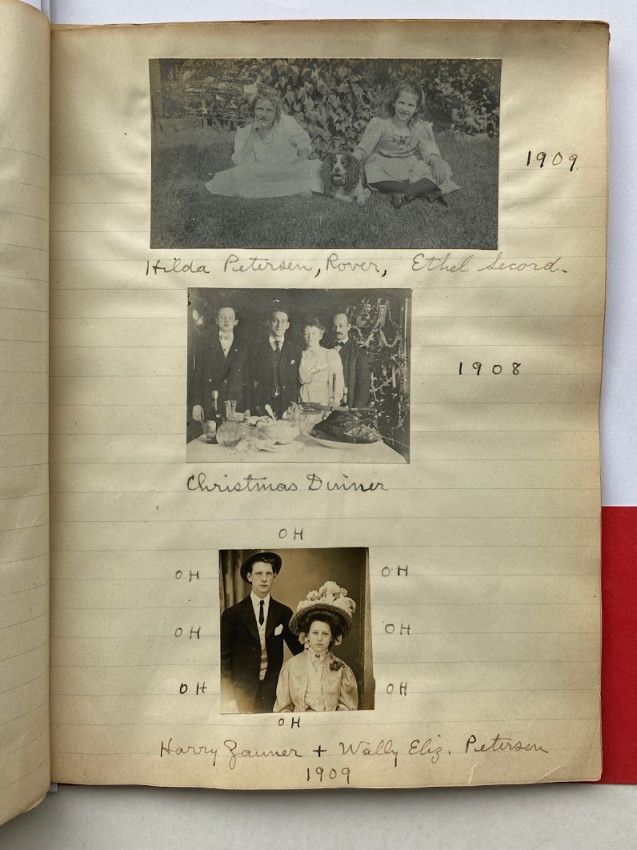 1909
Hilda Petersen, Rover, Ethel Secord.
1908
Christmas Dinner
OH
OH OH
OH OH
OH OH
OH
Harry Zauner + Wally Eliz. Petersen
1909